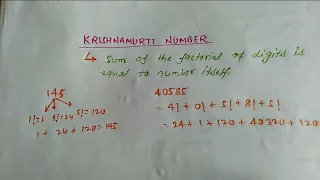 KRISHNAMURTI NUMBER
↳ Sum of the factorial of digits is
equal to number itself.
145
1!=1 4!=24 5!=120
1 + 24 + 120 = 145
40585
= 4! + 0! + 5! + 8! + 5!
= 24 + 1 + 120 + 40320 + 120